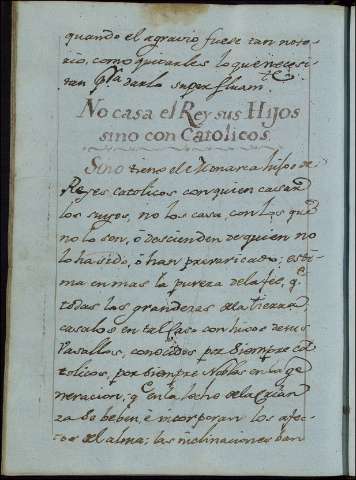 quando el agravio fuese tan noto-
rio, como quitarles lo que necesi-
tan pa. darlo superfluamte.
No casa el Rey sus Hijos
sino con Catolicos
Sino tiene el Monarca hijos de
Reyes catolicos con quien casar
los suyos, no los casa, con los que
no lo son, ó descienden de quien no
lo ha sido, ó han prevaricado; esti-
ma en mas la pureza de la fee, q.e
todas las grandezas de la tierra
casalos en tal caso con hijos de sus
Vasallos, conocidos por Siempre ca-
tolicos, por Siempre Nobles en la ge
neracion; q.e en la leche de la Crian
za se beben, é incorporan los afec-
tos del alma; las inclinaciones dan